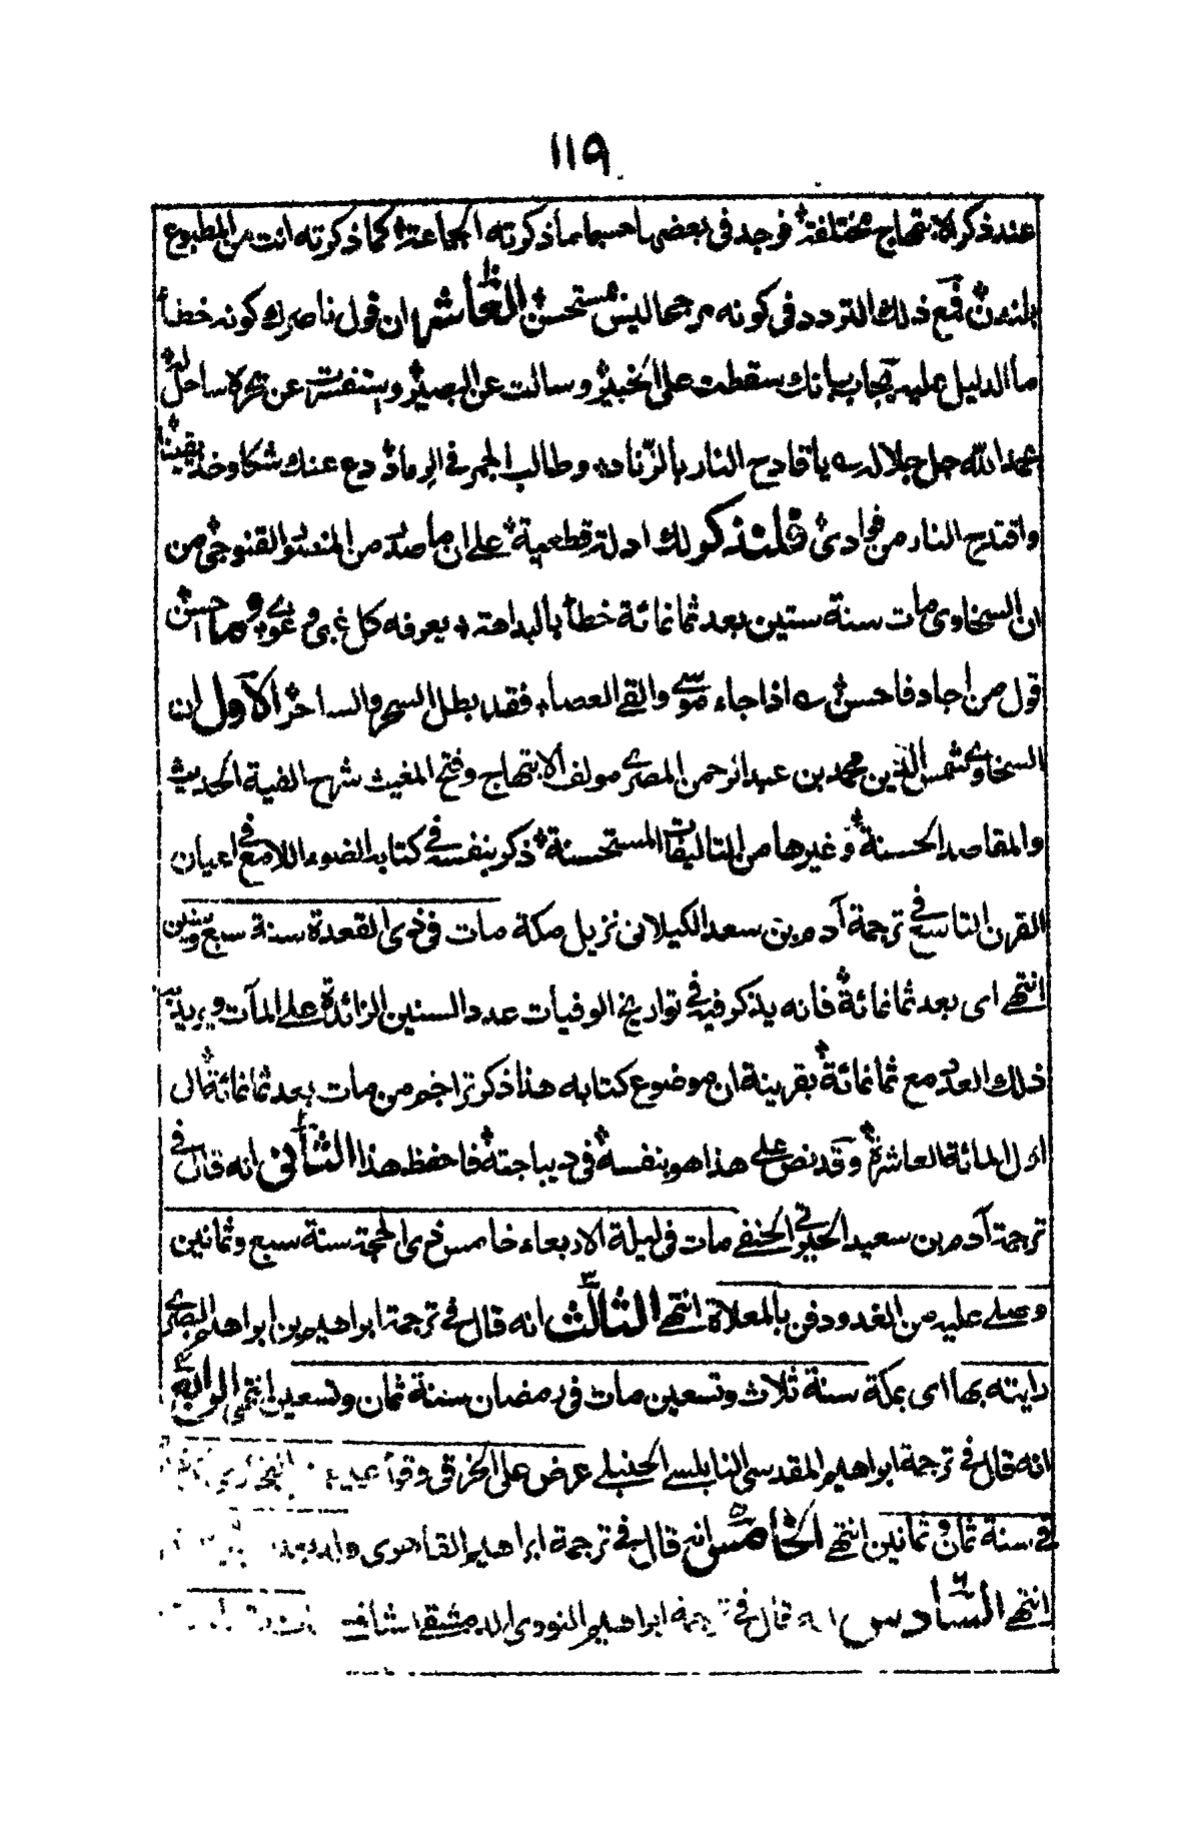 ١١٩
عند ذكر الابتهاج مختلفة فوجد في بعضها حسبما ما ذكرته الجماعة كما ذكرته انت من المطبوع
بلندن فمع ذلك التردد في كونه مرجحا ليس بمستحسن العاشر ان قول ناصرك كونه خطأ
ما الدليل عليه يجاب بانك سقطت على الخبير وسالت عن البصير واستفتيت عن بحر لا ساحل له
بحمد الله جل جلاله يا قادح النار بالزناد وطالب الجمر في الرماد دع عنك شكا وخذ يقينا
واقتدح النار من فوادي فلنذكر لك ادلة قطعية على ان ما صدر من المنشئ القنوجي من
ان السخاوي مات سنة ستين بعد ثمانمائة خطأ بالبداهة يعرفه كل غبي وغوي وما احسن
قول من اجاد فاحسن اذا جاء موسى والقى العصا فقد بطل السحر والساحر الاول ان
السخاوي شمس الدين محمد بن عبد الرحمن المصري مولف الابتهاج وفتح المغيث شرح الفية الحديث
والمقاصد الحسنة وغيرها من التاليفات المستحسنة ذكر بنفسه في كتابه الضوء اللامع في اعيان
القرن التاسع في ترجمة آدم بن سعد الكيلاني نزيل مكة مات في ذي القعدة سنة سبع وستين
انتهى اي بعد ثمانمائة فانه يذكر فيه في تواريخ الوفيات عدد السنين الزائدة على المآت ويريد به
ذلك العدد مع ثمانمائة بقرينة ان موضوع كتابه هذا ذكر تراجم من مات بعد ثمانمائة الى
اول المائة العاشرة وقد نص على هذا هو بنفسه في ديباجته فاحفظ هذا الثاني انه قال في
ترجمة آدم بن سعيد الحبرتي الحنفي مات في ليلة الاربعاء خامس ذي الحجة سنة سبع وثمانين
وصلى عليه من الغد ودفن بالمعلاة انتهى الثالث انه قال في ترجمة ابراهيم بن ابراهيم البصري
رايته بها اي بمكة سنة ثلاث وتسعين مات في رمضان سنة ثمان وتسعين انتهى الرابع
انه قال في ترجمة ابراهيم المقدسي النابلسي الحنبلي عرض على الخرقي وقرأ
في سنة ثمان وثمانين انتهى الخامس انه قال في ترجمة ابراهيم القاهري
انتهى السادس انه قال في ترجمة ابراهيم النووي الدمشقي الشافعي